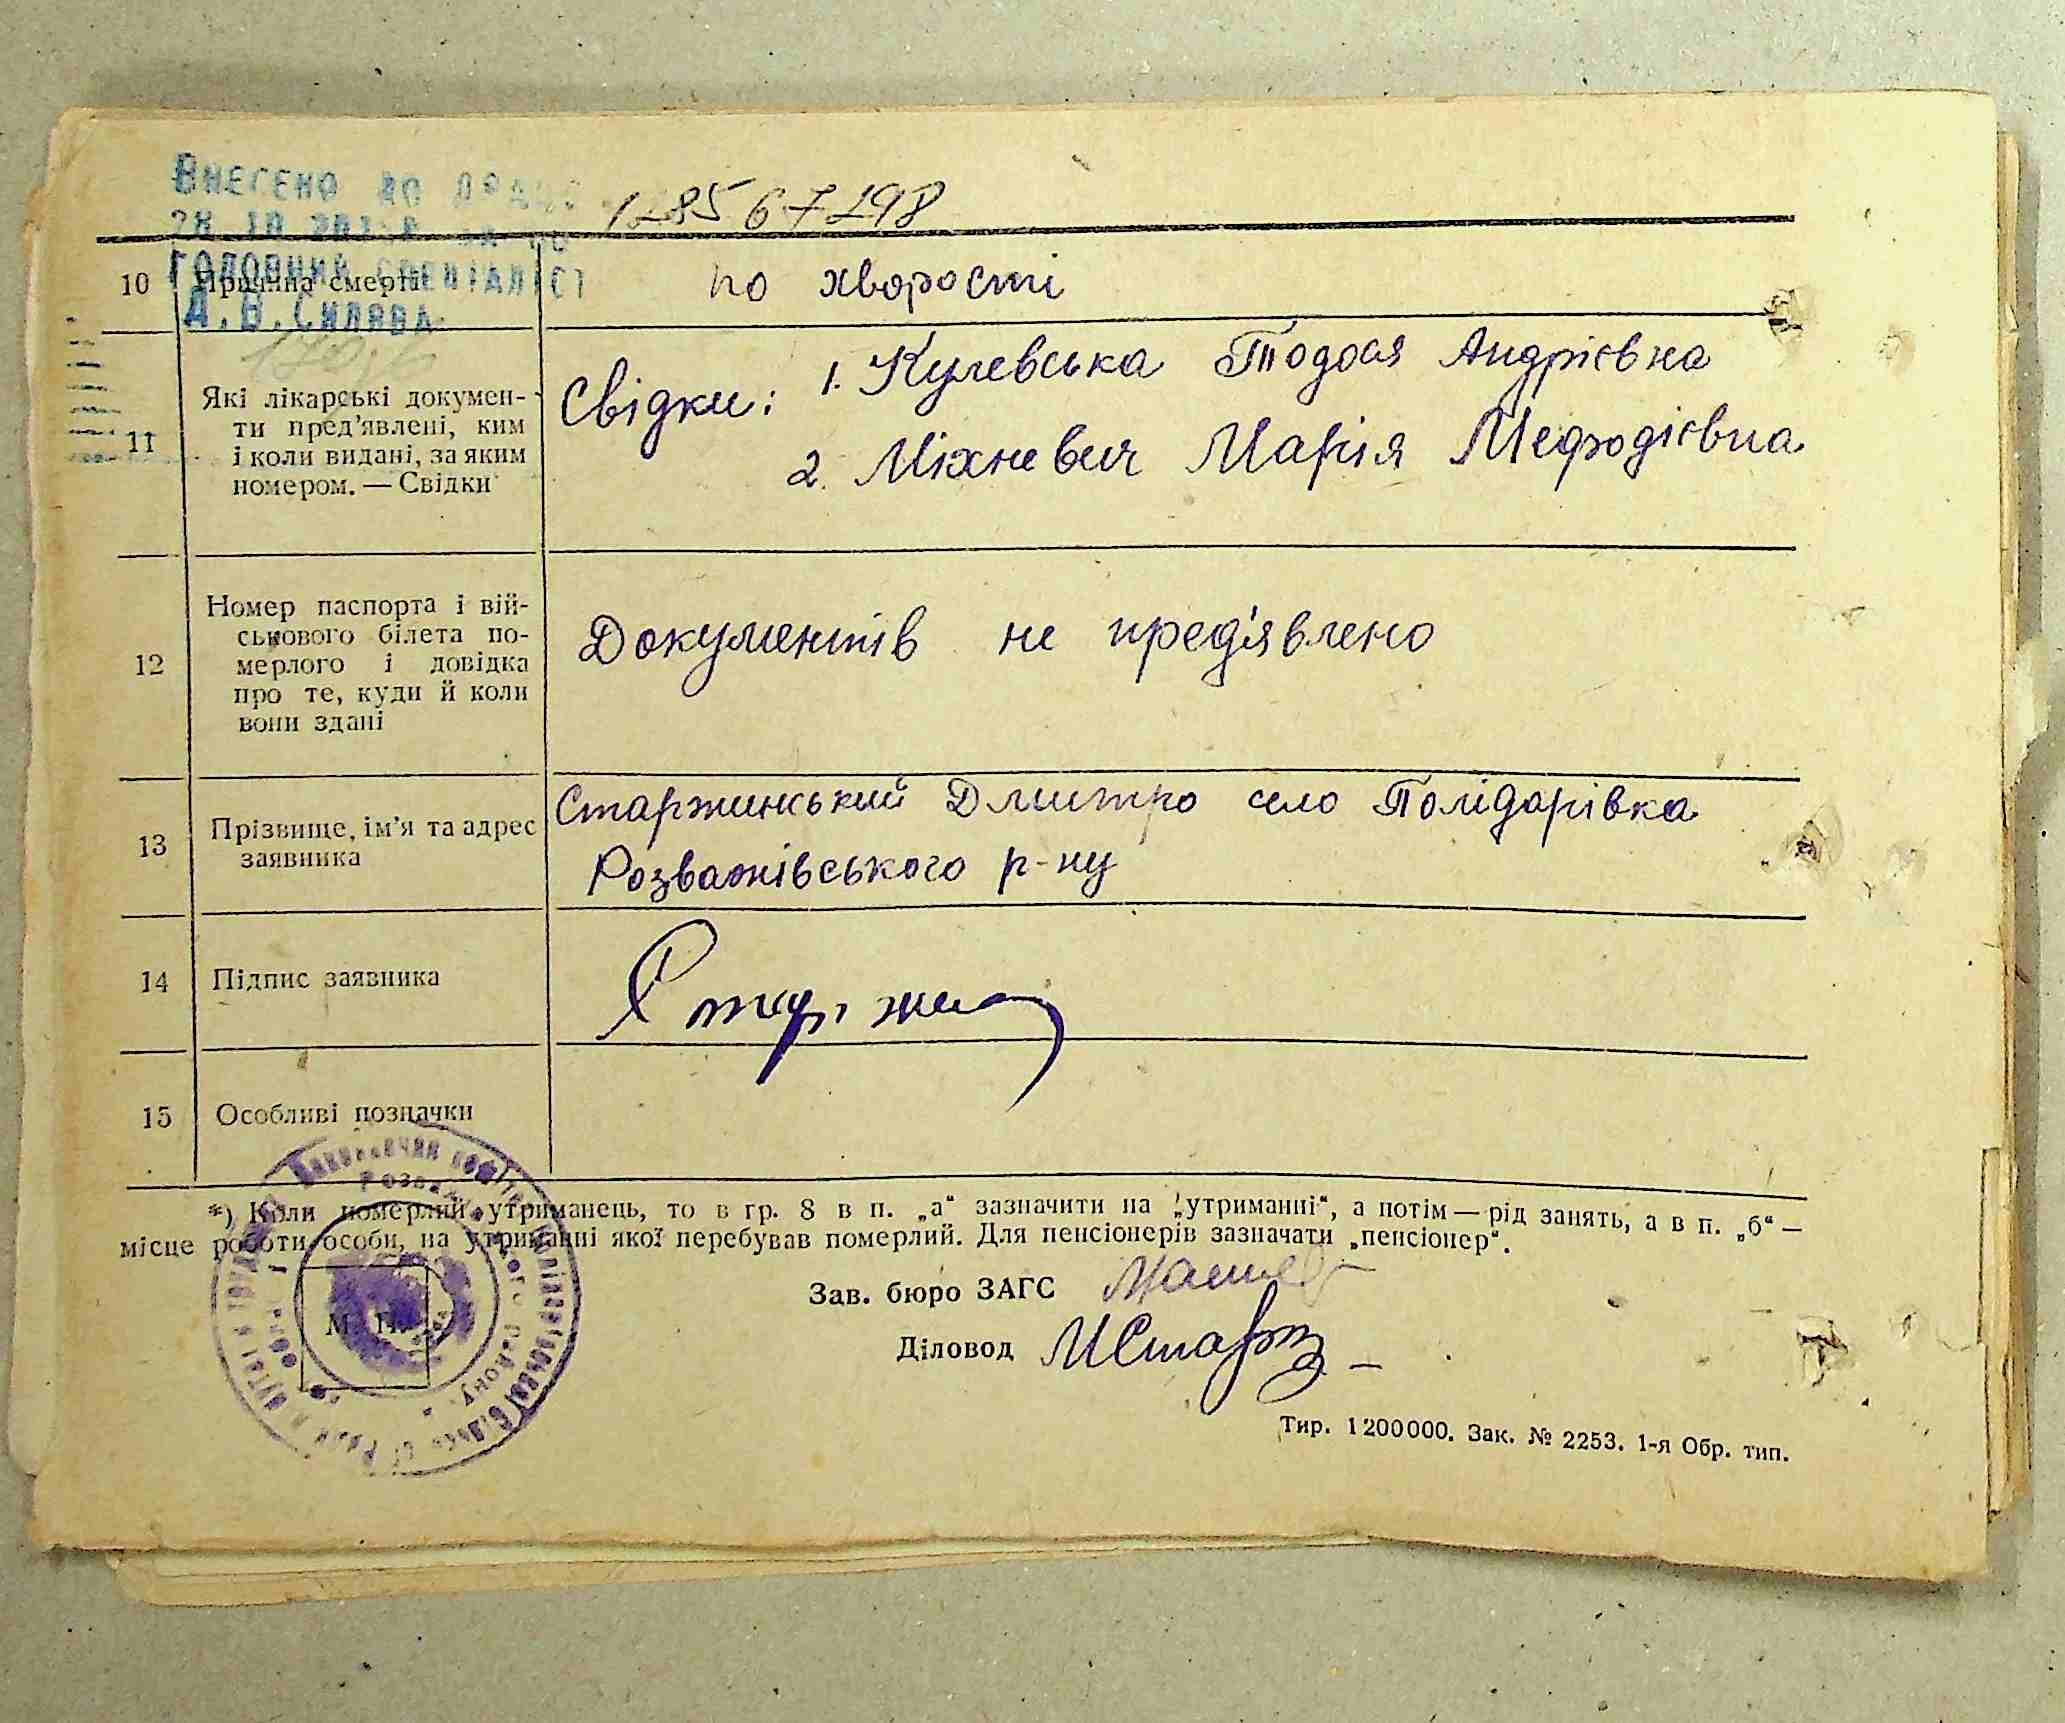 ВНЕСЕНО ДО ДРАЦС
128567298
ГОЛОВНИЙ СПЕЦІАЛІСТ
Д.В.СИЛЯВА
10 Причина смерти по хворості
11 Які лікарські докумен-
ти пред’явлені, ким
і коли видані, за яким
номером. — Свідки
Свідки: 1. Кулевська Тодося Андрієвна
2. Міхневич Марія Мефодієвна
12 Номер паспорта і вій-
ськового білета по-
мерлого і довідка
про те, куди й коли
вони здані
Документів не пред'явлено
13 Прізвище, ім’я та адрес
заявника
Старжинський Дмитро село Полідарівка
Розважівського р-ну
14 Підпис заявника
15 Особливі позначки
*) Коли померлий утриманець, то в гр. 8 в п. „а“ зазначити на „утриманні“, а потім — рід занять, а в п. „б“ —
місце роботи особи, на утриманні якої перебував померлий. Для пенсіонерів зазначати „пенсіонер“.
Зав. бюро ЗАГС
М. П.
Діловод
Тир. 1200000. Зак. № 2253. 1-я Обр. тип.